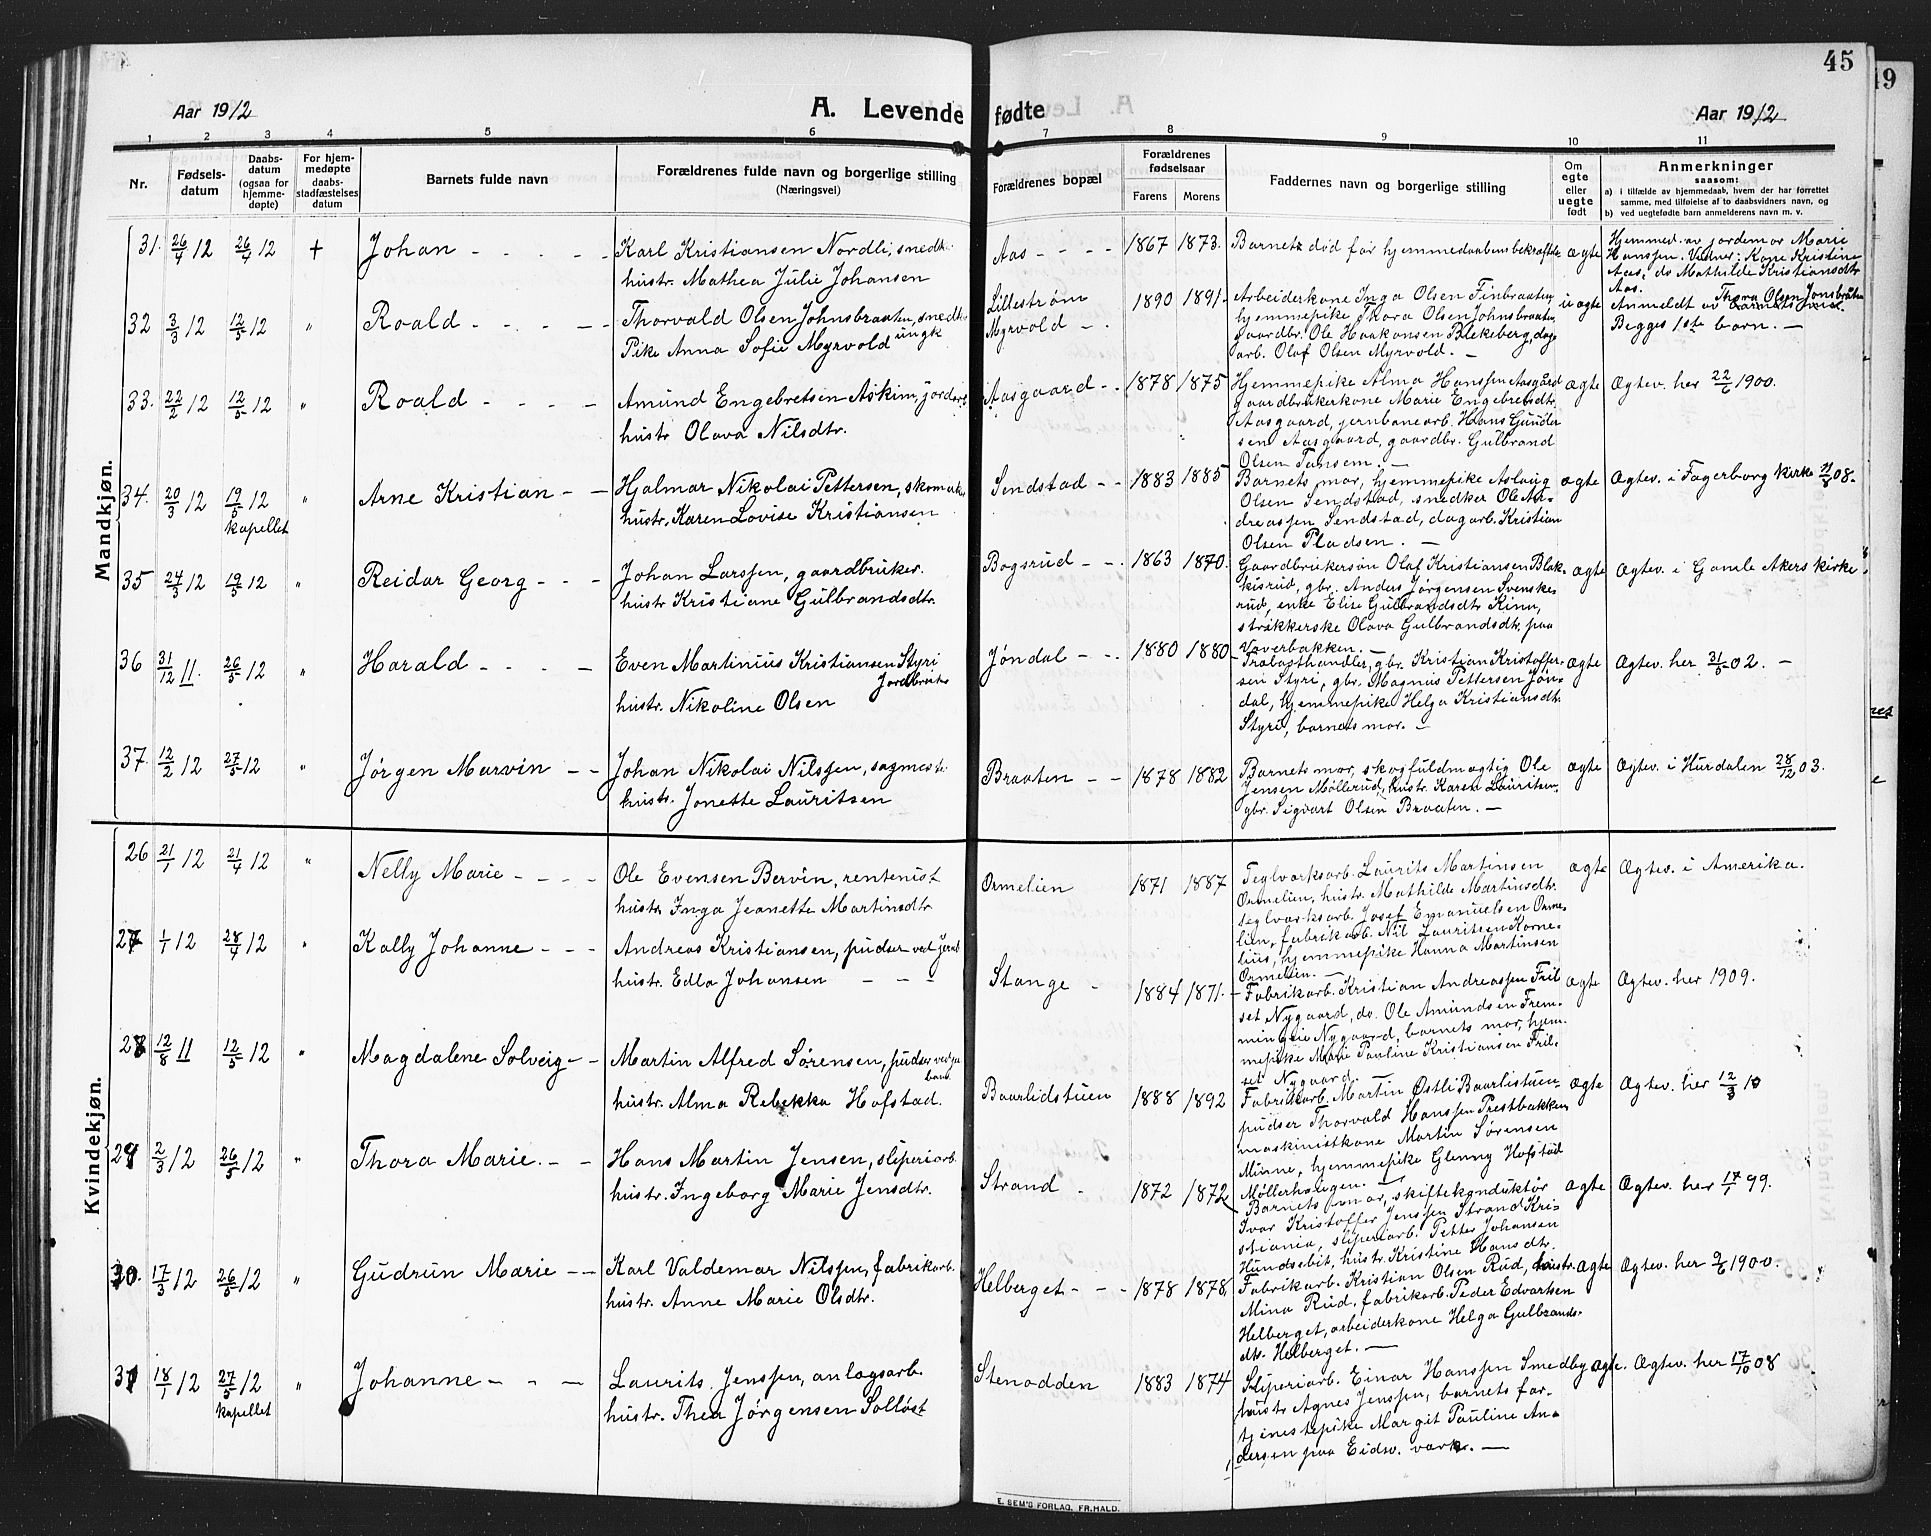 45
49
Aar 1912
A. Levende fødte
Aar 1912
1 2 3 4 5 6 7 8 9 10 11
Nr.
Fødselsdatum
Daabsdatum (ogsaa for hjemmedøpte)
For hjemmedøpte daabsstadfæstelses datum
Barnets fulde navn
Forældrenes fulde navn og borgerlige stilling (Næringsvei)
Forældrenes bopæl
Forældrenes fødselsaar
Farens Morens
Faddernes navn og borgerlige stilling
Om egte eller uegte født
Anmerkninger
saasom:
a) i tilfælde av hjemmedaab, hvem der har forrettet samme, med tilføielse af to daabsvidners navn, og
b) ved uegtefødte barn anmelderens navn m. v.
Mandkjøn.
31. 26/4 12 26/4 12 + Johan
Karl Kristiansen Nordli, snedk.
hustr. Mathea Julie Johansen
Aas 1867 1873.
Barnet død før hjemmedaabens bekræftelse
ægte
Hjemmed. av jordemor Marie
Hanssen. Vidner: Kone Kristine
Aas, do Mathilde Kristiansdtr
Aas.
32 3/3 12 12/5 12 " Roald
Thorvald Olsen Johnsbraaten, snedk.
ungk
Pike Anna Sofie Myrvold
Lillestrøm
Myrvold
1890 1891.
Arbeiderkone Inga Olsen Finbraaten,
hjemmepike Thora Olsen Johnsbraaten,
gaardbr. Ole Haakonsen Blekeberg, dag
arb. Olaf Olsen Myrvold.
uægte
Thora Olsen Jonsbråten
Anmeldt av
Begges 1ste barn.
33. 22/2 12 12/5 12 " Roald
Amund Engebretsen Askim, jordarb.
hustr Olava Nilsdtr.
Aasgaard 1878 1875
Hjemmepike Alma Hanssen Aasgård
gaardbrukerkone Marie Engebretsdtr.
Aasgaard, jernbanearb. Hans Gunder
sen Aasgaard, gaardbr. Gulbrand
Olsen Tansem.
ægte Ægtev. her 22/6 1900.
34. 20/3 12 19/5 12 kapellet " Arne Kristian
Hjalmar Nikolai Pettersen, skomaker
hustr. Karen Lovise Kristiansen
Sendstad 1883 1885
Barnets mor, hjemmepike Aslaug
Olsen Sendstad, snedker Ole An-
dreassen Sendstad, dagarb. Kristian
Olsen Pladsen.
ægte Ægtev. i Fagerborg kirke 08.
35 24/3 12 19/5 12 " Reidar Georg
Johan Larssen, gaardbruker.
hustr Kristiane Gulbrandsdtr.
Bogsrud 1863 1870.
Gaardbrukersøn Olaf Kristiansen Blak-
kisrud, gbr. Anders Jørgensen Svenske-
rud, enke Elise Gulbrandsdtr Kinn,
strikkerske Olava Gulbrandsdtr. paa
Vaverbakken.
ægte Ægtev. i Gamle Akers kirke
36 31/12 11. 26/5 12 " Harald
Even Martinius Kristiansen Styri
Jordbruker
hustr. Nikoline Olsen
Jøndal 1880 1880
Trælasthandler, gbr. Kristian Kristoffer-
sen Styri, gbr. Magnus Pettersen Jøn-
dal, hjemmepike Helga Kristiansdtr.
Styri, barnets mor.
ægte Ægtev. her 31/5 02.
37. 12/2 12 27/5 12 " Jørgen Marvin
Johan Nikolai Nilssen, sagmester
hustr. Jonette Lauritsen
Braaten 1878 1882
Barnets mor, skogfuldmægtig Ole
Jensen Møllerud, hustr. Karen Lauritsen,
gbr. Sigvart Olsen Braaten.
ægte Ægtev. i Hurdalen 28/12 03.
Kvindekjøn.
26 21/1 12 21/4 12 " Nelly Marie
Ole Evensen Bervin, rentenist
hustr. Inga Jeanette Martinsdtr
Ormelien 1871 1887
Teglverksarb. Laurits Martinsen
Ormelien, hustr. Mathilde Martinsdtr.
teglverksarb. Josef Emanuelsen Orme-
lien, fabrikarb. Nil Lauritsen Korne-
lius, hjemmepike Hanna Martinsen
Ormelien.
ægte Ægtev. i Amerika.
27 1/1 12 28/4 12 " Kally Johanne
Andreas Kristiansen, pudser ved jernb.
hustr. Edla Johansen
Stange 1884 1871.
Fabrikarb. Kristian Andreassen Fril
set Nygaard, do. Ole Amundsen Frem-
mingeie Nygaard, barnets mor, hjem-
mepike Marie Pauline Kristiansen Fril-
set Nygaard.
ægte Ægtev. her 1909.
28 12/8 11 12/5 12 " Magdalene Solveig
Martin Alfred Sørensen, pudser ved jern
bane
hustr. Alma Rebekka Hofstad.
Baarlidstuen 1888 1892
Fabrikarb. Martin Østli Baarlistuen,
pudser Thorvald Hanssen Prestbakken,
maskinistkone Martin Sørensen
Minne, hjemmepike Glenny Hofstad
Møllerhaugen.
ægte Ægtev. her 12/3 10
29 2/3 12 26/5 12 " Thora Marie
Hans Martin Jensen, sliperiarb.
hustr. Ingeborg Marie Jensdtr.
Strand 1872 1872
Barnets mor, skiftekonduktør
Ivar Kristoffer Jenssen Strand Kri-
stiania, sliperiarb. Petter Johansen
Hundsebit, hustr. Kristine Hansdtr.
ægte Ægtev. her 17/1 99.
30. 17/3 12 26/5 12 " Gudrun Marie
Karl Valdemar Nilssen, fabrikarb.
hustr. Anne Marie Olsdtr.
Helberget 1878 1878
Fabrikarb. Kristian Olsen Rud, hustr.
Mina Rud, fabrikarb. Peder Edvartsen
Helberget, arbeiderkone Helga Gulbrands-
dtr. Helberget.
ægte Ægtev. her 9/6 1900.
31 18/1 12 27/5 12 kapellet " Johanne
Laurits Jenssen, anlægsarb.
hustr. Thea Jørgensen Solløst
Stenodden 1883 1874
Sliperiarb. Einar Hanssen Smedby
hustr Agnes Jenssen, barnets far,
tjenestepike Margit Pauline An-
dersen paa Eidsv. værk.
ægte. Ægtev. her 17/10 08
E. SEM'S FORLAG, FR.HALD.